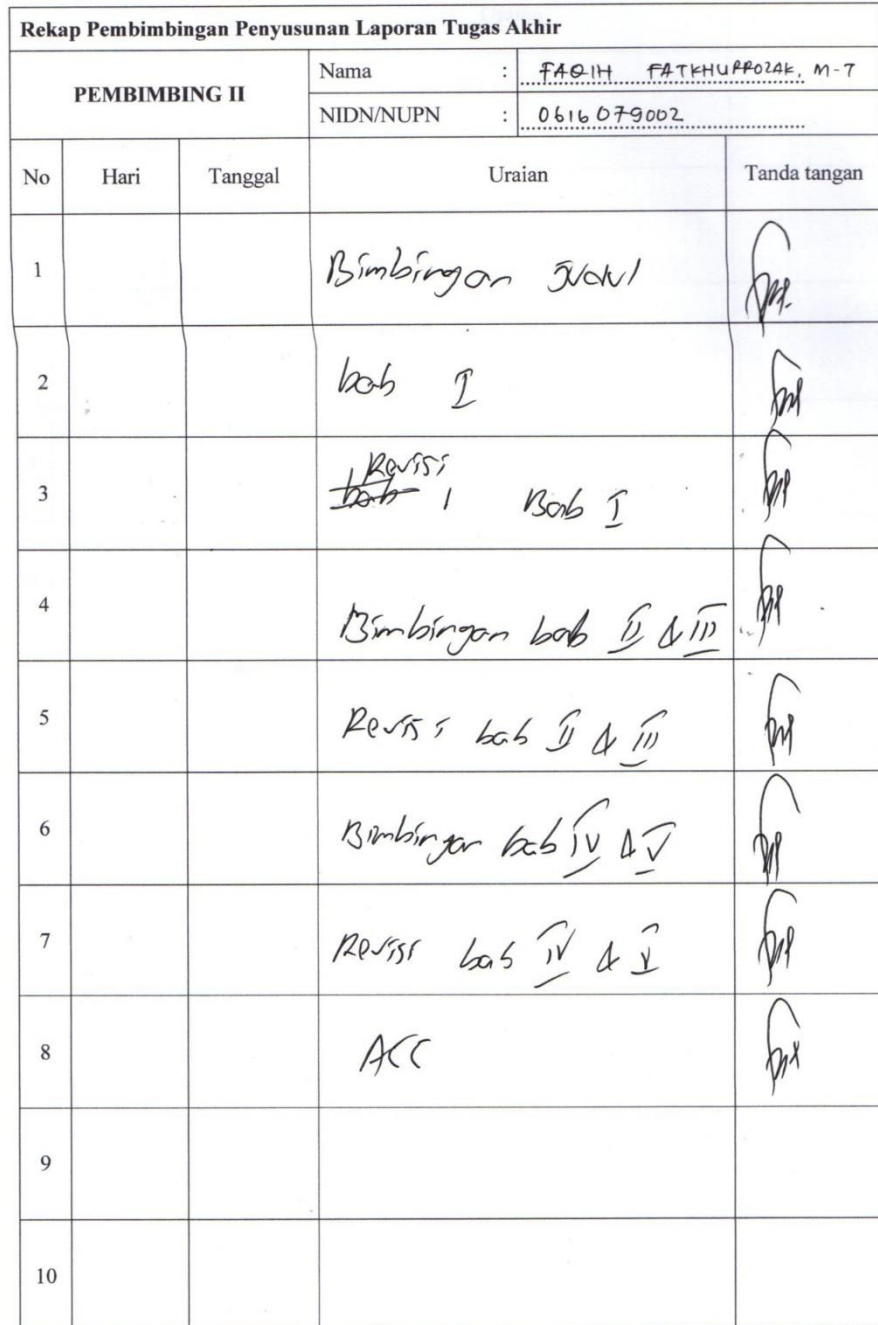 Rekap Pembimbingan Penyusunan Laporan Tugas Akhir
PEMBIMBING II
Nama : FAQIH FATKHURROZAK, M-T
NIDN/NUPN : 0616079002
No Hari Tanggal Uraian Tanda tangan
1 Bimbingan Judul
2 bab I
Revisi
3 bab 1 Bab I
4 Bimbingan bab II & III
5 Revisi bab II & III
6 Bimbingan bab IV & V
7 Revisi bab IV & V
8 ACC
9
10